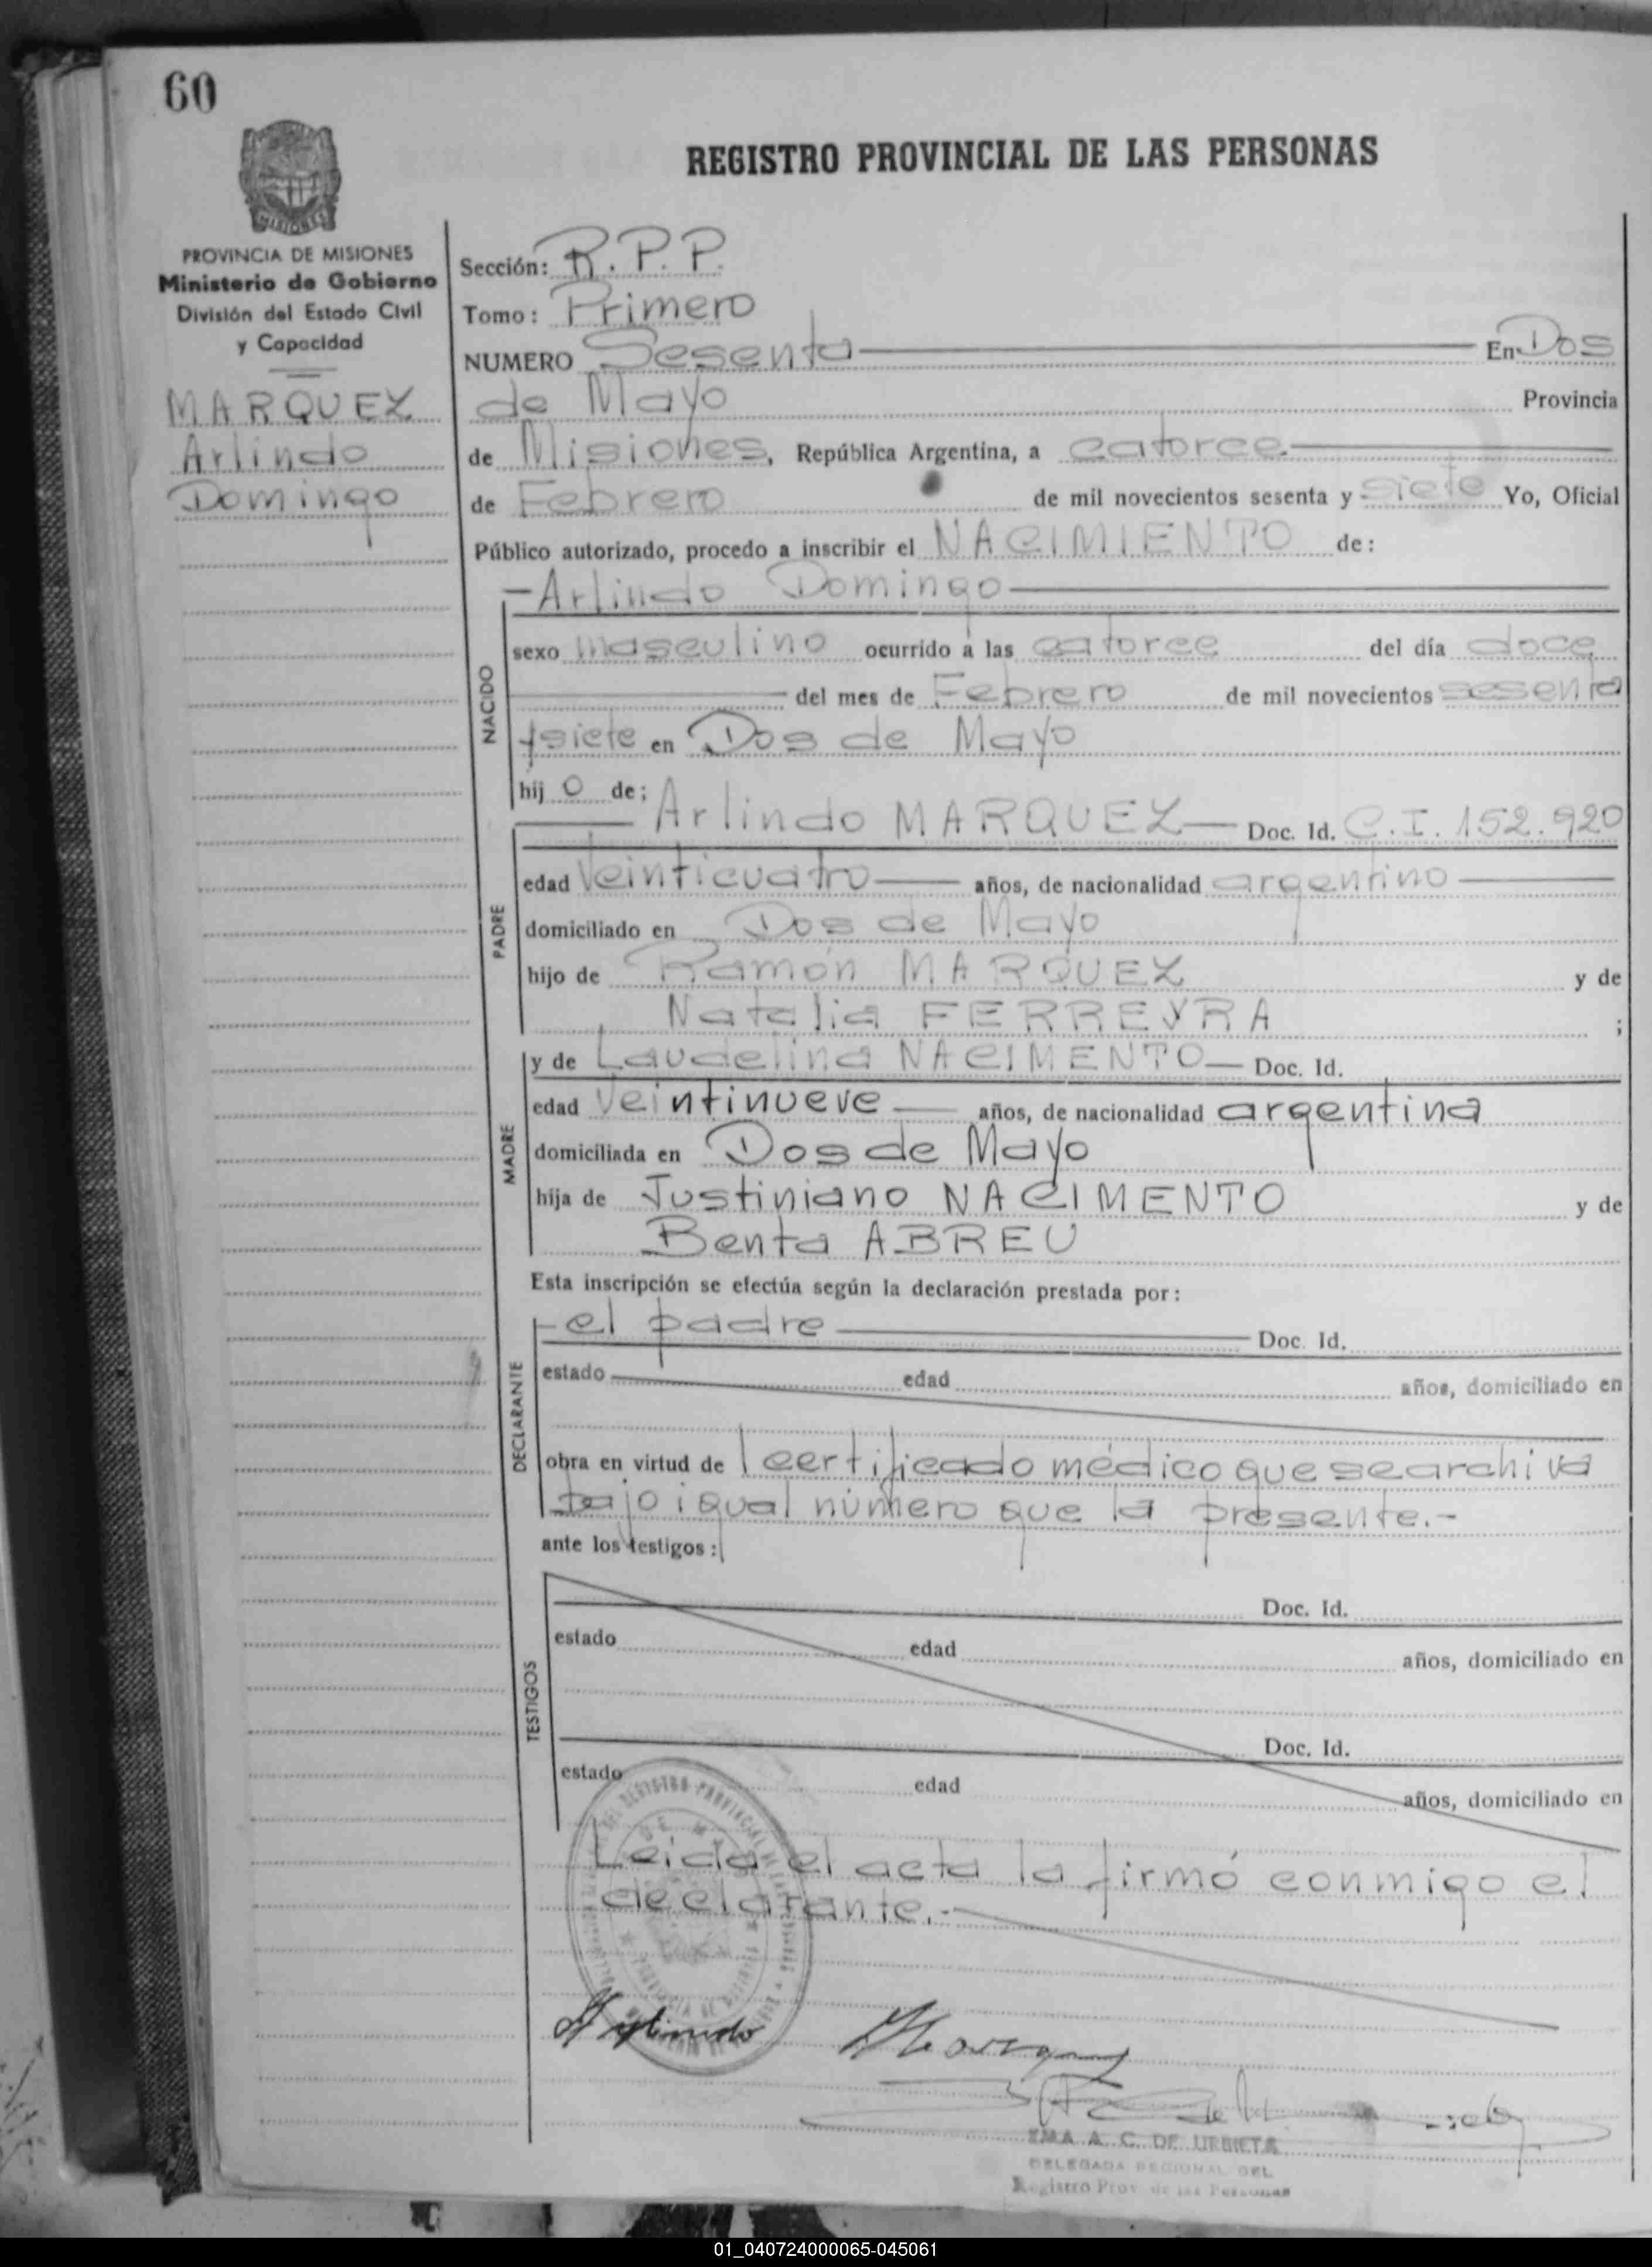 60
REGISTRO PROVINCIAL DE LAS PERSONAS
MISIONES
PROVINCIA DE MISIONES
Ministerio de Gobierno
División del Estado Civil
y Capacidad
MARQUEZ
Arlindo
Domingo
Sección: R.P.P.
Tomo: Primero
NUMERO Sesenta En Dos
de Mayo Provincia
de Misiones, República Argentina, a catorce
de Febrero de mil novecientos sesenta y siete Yo, Oficial
Público autorizado, procedo a inscribir el NACIMIENTO de:
- Arlindo Domingo
NACIDO
sexo masculino ocurrido a las catorce del día doce
del mes de Febrero de mil novecientos sesenta
ysiete en Dos de Mayo
hij o de;
Arlindo MARQUEZ Doc. Id. C.I. 152.920
PADRE
edad veinticuatro años, de nacionalidad argentino
domiciliado en Dos de Mayo
hijo de Ramón MARQUEZ y de
Natalia FERREYRA ;
MADRE
y de Laudelina NACIMENTO Doc. Id.
edad veintinueve años, de nacionalidad argentina
domiciliada en Dos de Mayo
hija de Justiniano NACIMENTO y de
Benta ABREU
Esta inscripción se efectúa según la declaración prestada por:
DECLARANTE
- el padre Doc. Id.
estado edad años, domiciliado en
obra en virtud de l certificado médico que se archiva
bajo igual número que la presente.-
ante los testigos:
TESTIGOS
Doc. Id.
estado edad años, domiciliado en
Doc. Id.
estado edad años, domiciliado en
Leida el acta la firmó conmigo el
declarante.-
Arlindo Marquez
EMA A. C. DE URBIETA
DELEGADA REGIONAL DEL
Registro Prov. de las Personas
01_040724000065-045061